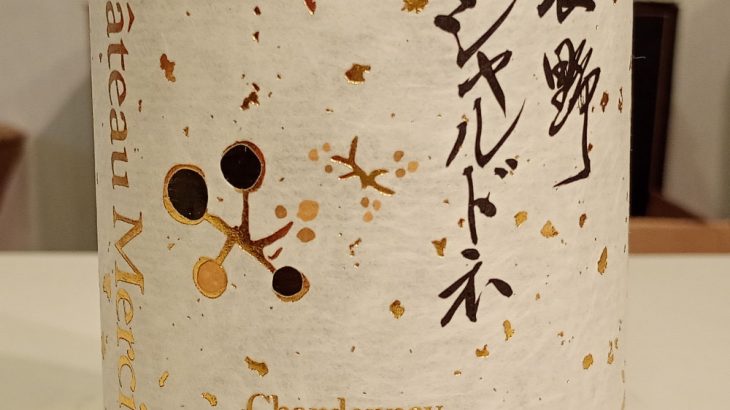 野
シャルドネ
âteau Merci
Chardonnay